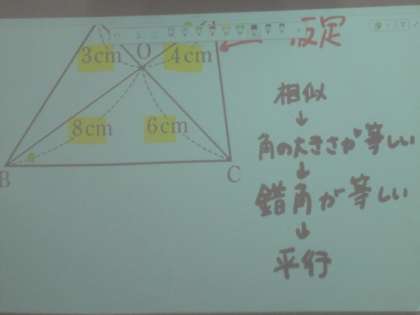 仮定
3cm 4cm
O
8cm 6cm
B C
相似
↓
角の大きさが等しい
↓
錯角が等しい
↓
平行